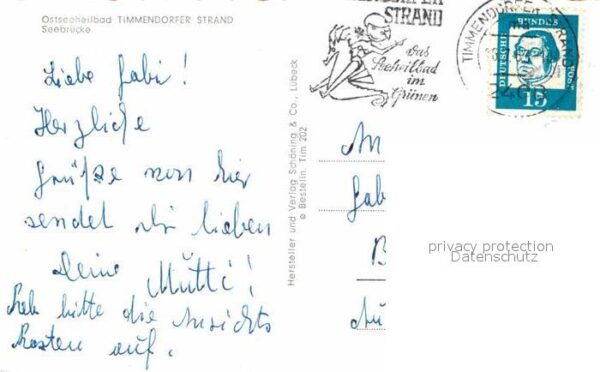 Ostseeheilbad TIMMENDORFER STRAND
Seebrücke
Liebe Gabi!
Herzliche
Grüße von hier
sendet dir lieben
Deine Mutti!
Heb bitte die Ansichts
karten auf.
Hersteller und Verlag Schöning & Co., Lübeck
Bestellnr. Tim 202
STRAND
Das
Seeheilbad
im
Grünen
TIMMENDORFER STRAND
2408
DEUTSCHE BUNDESPOST
15
An
Gab
B
privacy protection
Datenschutz